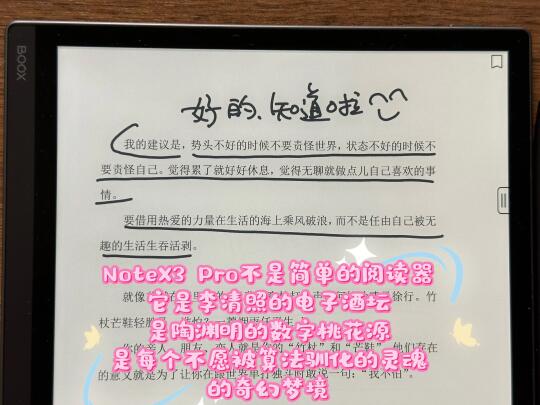 BOOX
好的、知道啦
我的建议是，势头不好的时候不要责怪世界，状态不好的时候不
要责怪自己。觉得累了就好好休息，觉得无聊就做点儿自己喜欢的事
情。
要借用热爱的力量在生活的海上乘风破浪，而不是任由自己被无
趣的生活生吞活剥。
NoteX3 Pro不是简单的阅读器
它是李清照的电子酒坛
就像
徐行。竹
杖芒鞋轻胜
是陶渊明的数字桃花源
是每个不愿被算法驯化的灵魂
的意义就是为了让你在跟世界单打独斗时敢说一句：“我不怕”。
的奇幻梦境